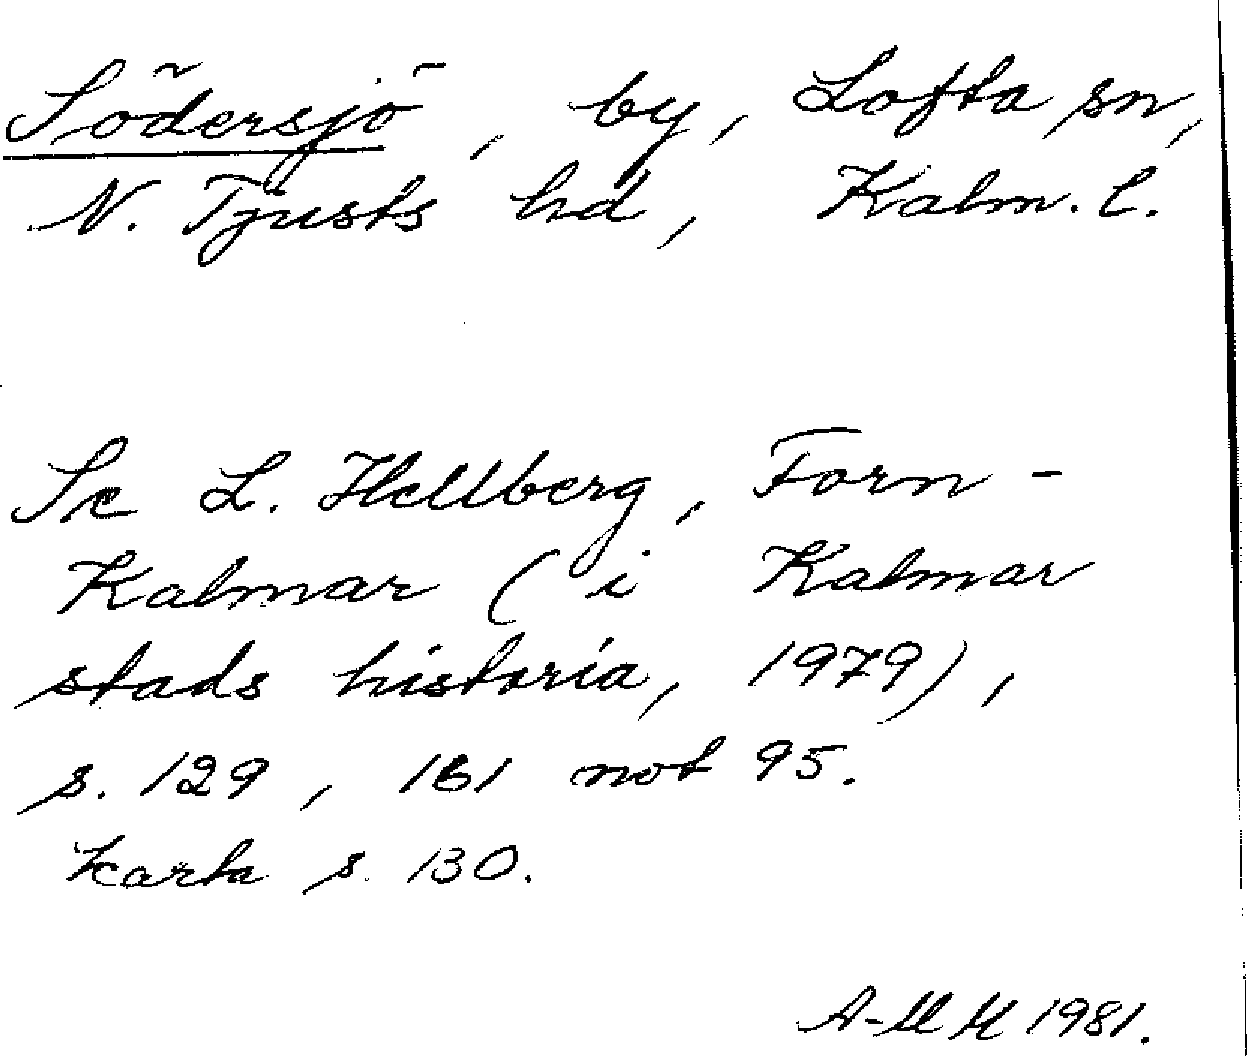 Södersjö, by, Lofta sn,
N. Tjusts hd, Kalm. l.
Se L. Hellberg, Forn-
Kalmar (i Kalmar
stads historia, 1979),
s. 129, 161 not 95.
Karta s. 130.
A-M H 1981.